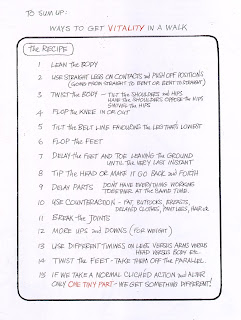 TO SUM UP:
WAYS TO GET VITALITY IN A WALK
The RECIPE
1 LEAN THE BODY
2 USE STRAIGHT LEGS ON CONTACTS and PUSH OFF POSITIONS
(GOING FROM STRAIGHT TO BENT OR BENT TO STRAIGHT)
3 TWIST THE BODY - TILT THE SHOULDERS and HIPS
HAVE THE SHOULDERS OPPOSE THE HIPS
SWIVEL THE HIPS
4 FLOP THE KNEE IN OR OUT
5 TILT THE BELT LINE FAVOURING THE LEG THAT'S LOWEST
6 FLOP THE FEET
7 DELAY THE FOOT AND TOE LEAVING THE GROUND
UNTIL THE VERY LAST INSTANT
8 TIP THE HEAD OR MAKE IT GO BACK and FORTH
9 DELAY PARTS DON'T HAVE EVERYTHING WORKING
TOGETHER AT THE SAME TIME.
10 USE COUNTERACTION - FAT, BUTTOCKS, BREASTS,
DELAYED CLOTHES, PANT LEGS, HAIR
11 BREAK the JOINTS
12 MORE UPS and DOWNS (FOR WEIGHT)
13 USE DIFFERENT TIMINGS ON LEGS VERSUS ARMS VERSUS
HEAD VERSUS BODY etc.
14 TWIST THE FEET - TAKE THEM OFF THE PARALLEL
15 IF WE TAKE A NORMAL CLICHÉD ACTION and ALTER
ONLY ONE TINY PART - WE GET SOMETHING DIFFERENT!